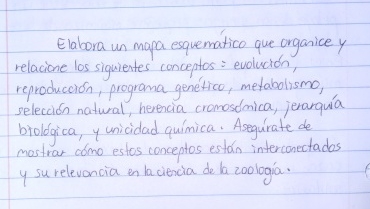 Elabora un mapa esquemático que organice y
relacione los siguientes conceptos: evolución,
reproducción, programa genético, metabolismo,
selección natural, herencia cromosómica, jerarquía
biológica, y unicidad química. Asegúrate de
mostrar cómo estos conceptos están interconectados
y su relevancia en la ciencia de la zoología.